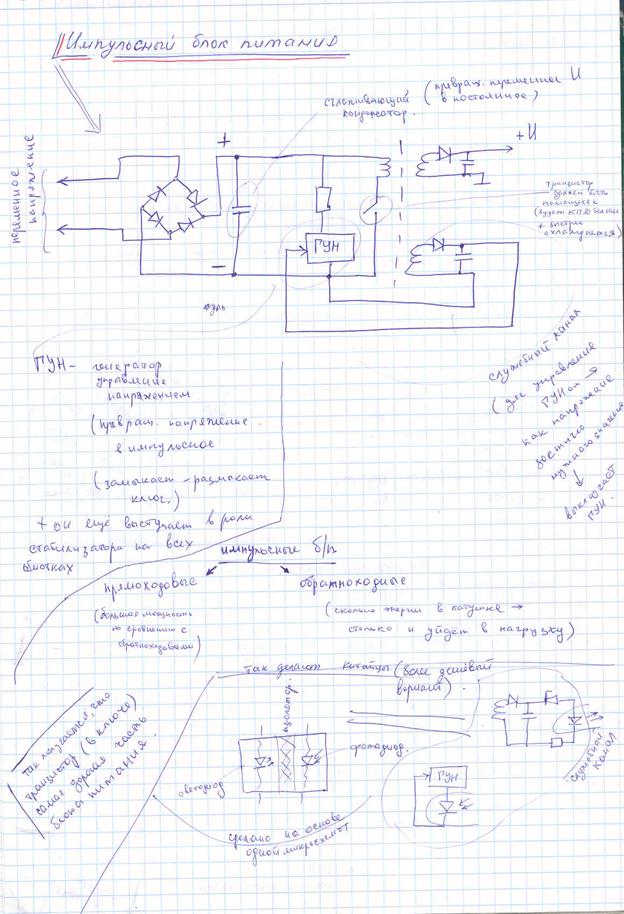 Импульсный блок питания
сглаживающий
конденсатор.
(превращ. переменное U
в постоянное)
переменное
напряжение
+
+U
транзистор
должен быть
помощнее
(будет КПД больше
+ быстрее
охлаждается)
ГУН
−
ГУН – генератор
управление
напряжением
(превращ. напряжение
в импульсное
(замыкает – размыкает
ключ.)
+ он ещё выступает в роли
стабилизатора на всех
служебный канал
(для управления
ГУНом →
как напряжение
достигло
нужного значения
↓
выключает
ГУН.
импульсные б/п
прямоходовые
(большая мощность
по сравнению с
обратноходовыми)
обратноходные
(сколько энергии в катушке →
столько и уйдёт в нагрузку)
так делают китайцы (более дешёвый
вариант).
Так получается, что
транзистор (в ключе)
самая дорогая часть
блока питания.
изолятор.
светодиод
фотодиод.
сделано на основе
одной микросхемы
ГУН
служебный
канал